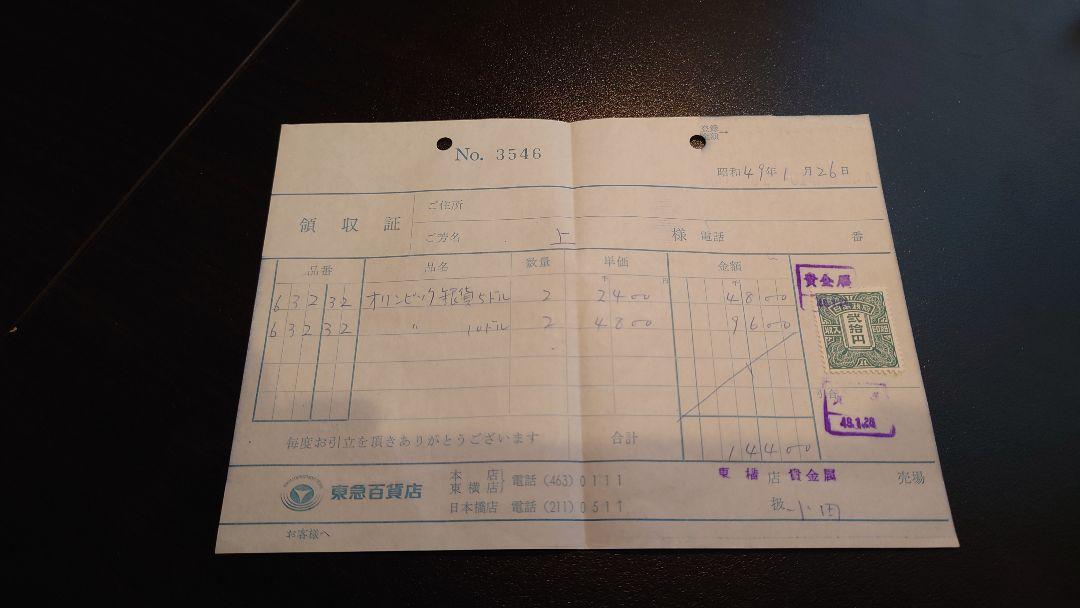 No. 3546
登録
金額→
昭和49年1月26日
領収証
ご住所
ご芳名 上 様 電話 番
品番 品名 数量 単価 金額
63232 オリンピック銀貨5ドル 2 2400 4800
63232 〃 10ドル 2 4800 9600
貴金属
日本政府
収入印紙
弐拾円
毎度お引立を頂きありがとうございます 合計 14400
東急百貨店
本店 東横店 電話(463)0111
日本橋店 電話(211)0511
東横店 貴金属 売場
扱 小田
お客様へ